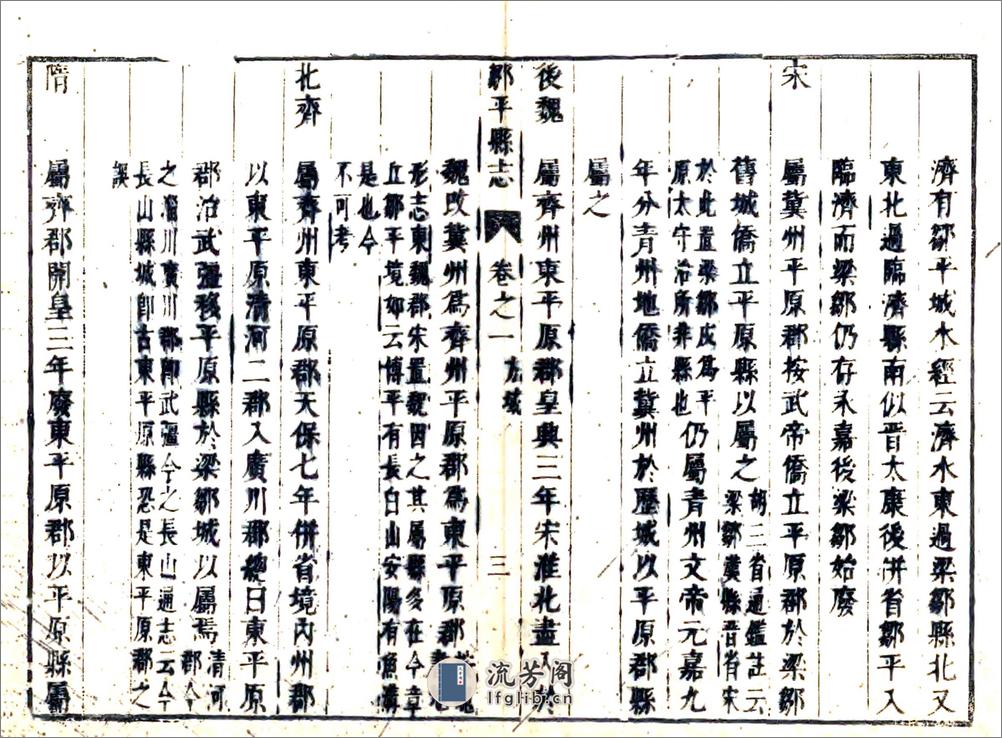 濟有鄒平城水經云濟水東過梁鄒縣北又
東北過臨濟縣南似晋太康後併省鄒平入
臨濟而梁鄒仍存永嘉後梁鄒始廢
宋
屬冀州平原郡按武帝僑立平原郡於梁鄒
舊城僑立平原縣以屬之胡三省通鑑註云梁鄒漢縣晋省宋
於此置梁鄒戍爲平原太守治所非縣也仍屬青州文帝元嘉九
年分青州地僑立冀州於歷城以平原郡縣
屬之
後魏 屬齊州東平原郡皇興三年宋淮北盡入於
鄒平縣志 卷之一 方域 三
魏改冀州爲齊州平原郡爲東平原郡
形志東魏郡宋置魏因之其屬縣多在今章
丘鄒平境如云博平有長白山安陽有魚溝
是也今
不可考
北齊 屬齊州東平原郡天保七年併省境內州郡
以東平原清河二郡入廣川郡總曰東平原
郡治武彊移平原縣於梁鄒城以屬焉清河郡
之淄川廣川郡卽武彊今之長山通志云今
長山縣城卽古東平原縣恐是東平原郡之
誤
隋 屬齊郡開皇三年廢東平原郡以平原縣屬
流芳阁
lfglib.cn